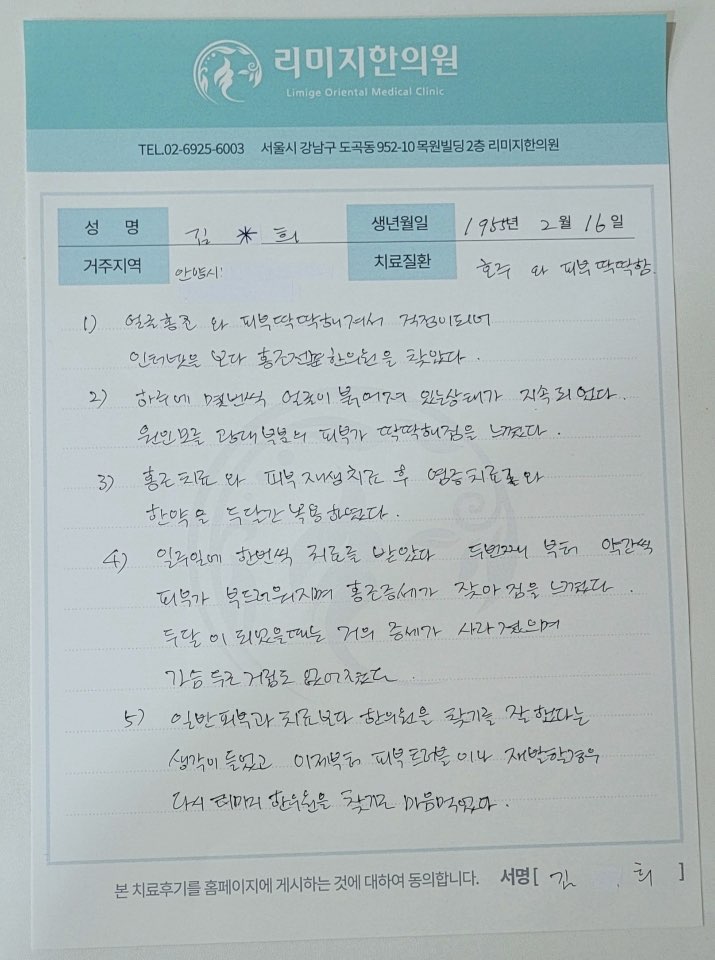 리미지한의원
Limige Oriental Medical Clinic
TEL.02-6925-6003 서울시 강남구 도곡동 952-10 목원빌딩 2층 리미지한의원
성 명 김 * 희 생년월일 1955년 2월 16일
거주지역 안양시 치료질환 홍조 와 피부 딱딱함
1) 얼굴홍조 와 피부딱딱해져서 걱정이되어
인터넷을 보다 홍조전문한의원을 찾았다.
2) 하루에 몇번씩 얼굴이 붉어져 있는상태가 지속되었다.
원인모를 광대부분의 피부가 딱딱해짐을 느꼈다.
3) 홍조치료 와 피부재생치료 후 염증치료와
한약을 두달간 복용하였다.
4) 일주일에 한번씩 치료를 받았다 두번째 부터 약간씩
피부가 부드러워지며 홍조증세가 잦아짐을 느꼈다.
두달이 되었을때는 거의 증세가 사라졌으며
가슴 두근거림도 없어졌다.
5) 일반피부과 치료보다 한의원을 찾기를 잘했다는
생각이 들었고 이제부터 피부트러블이나 재발할경우
다시 리미지 한의원을 찾기로 마음먹었다.
본 치료후기를 홈페이지에 게시하는 것에 대하여 동의합니다. 서명 [ 김 희 ]